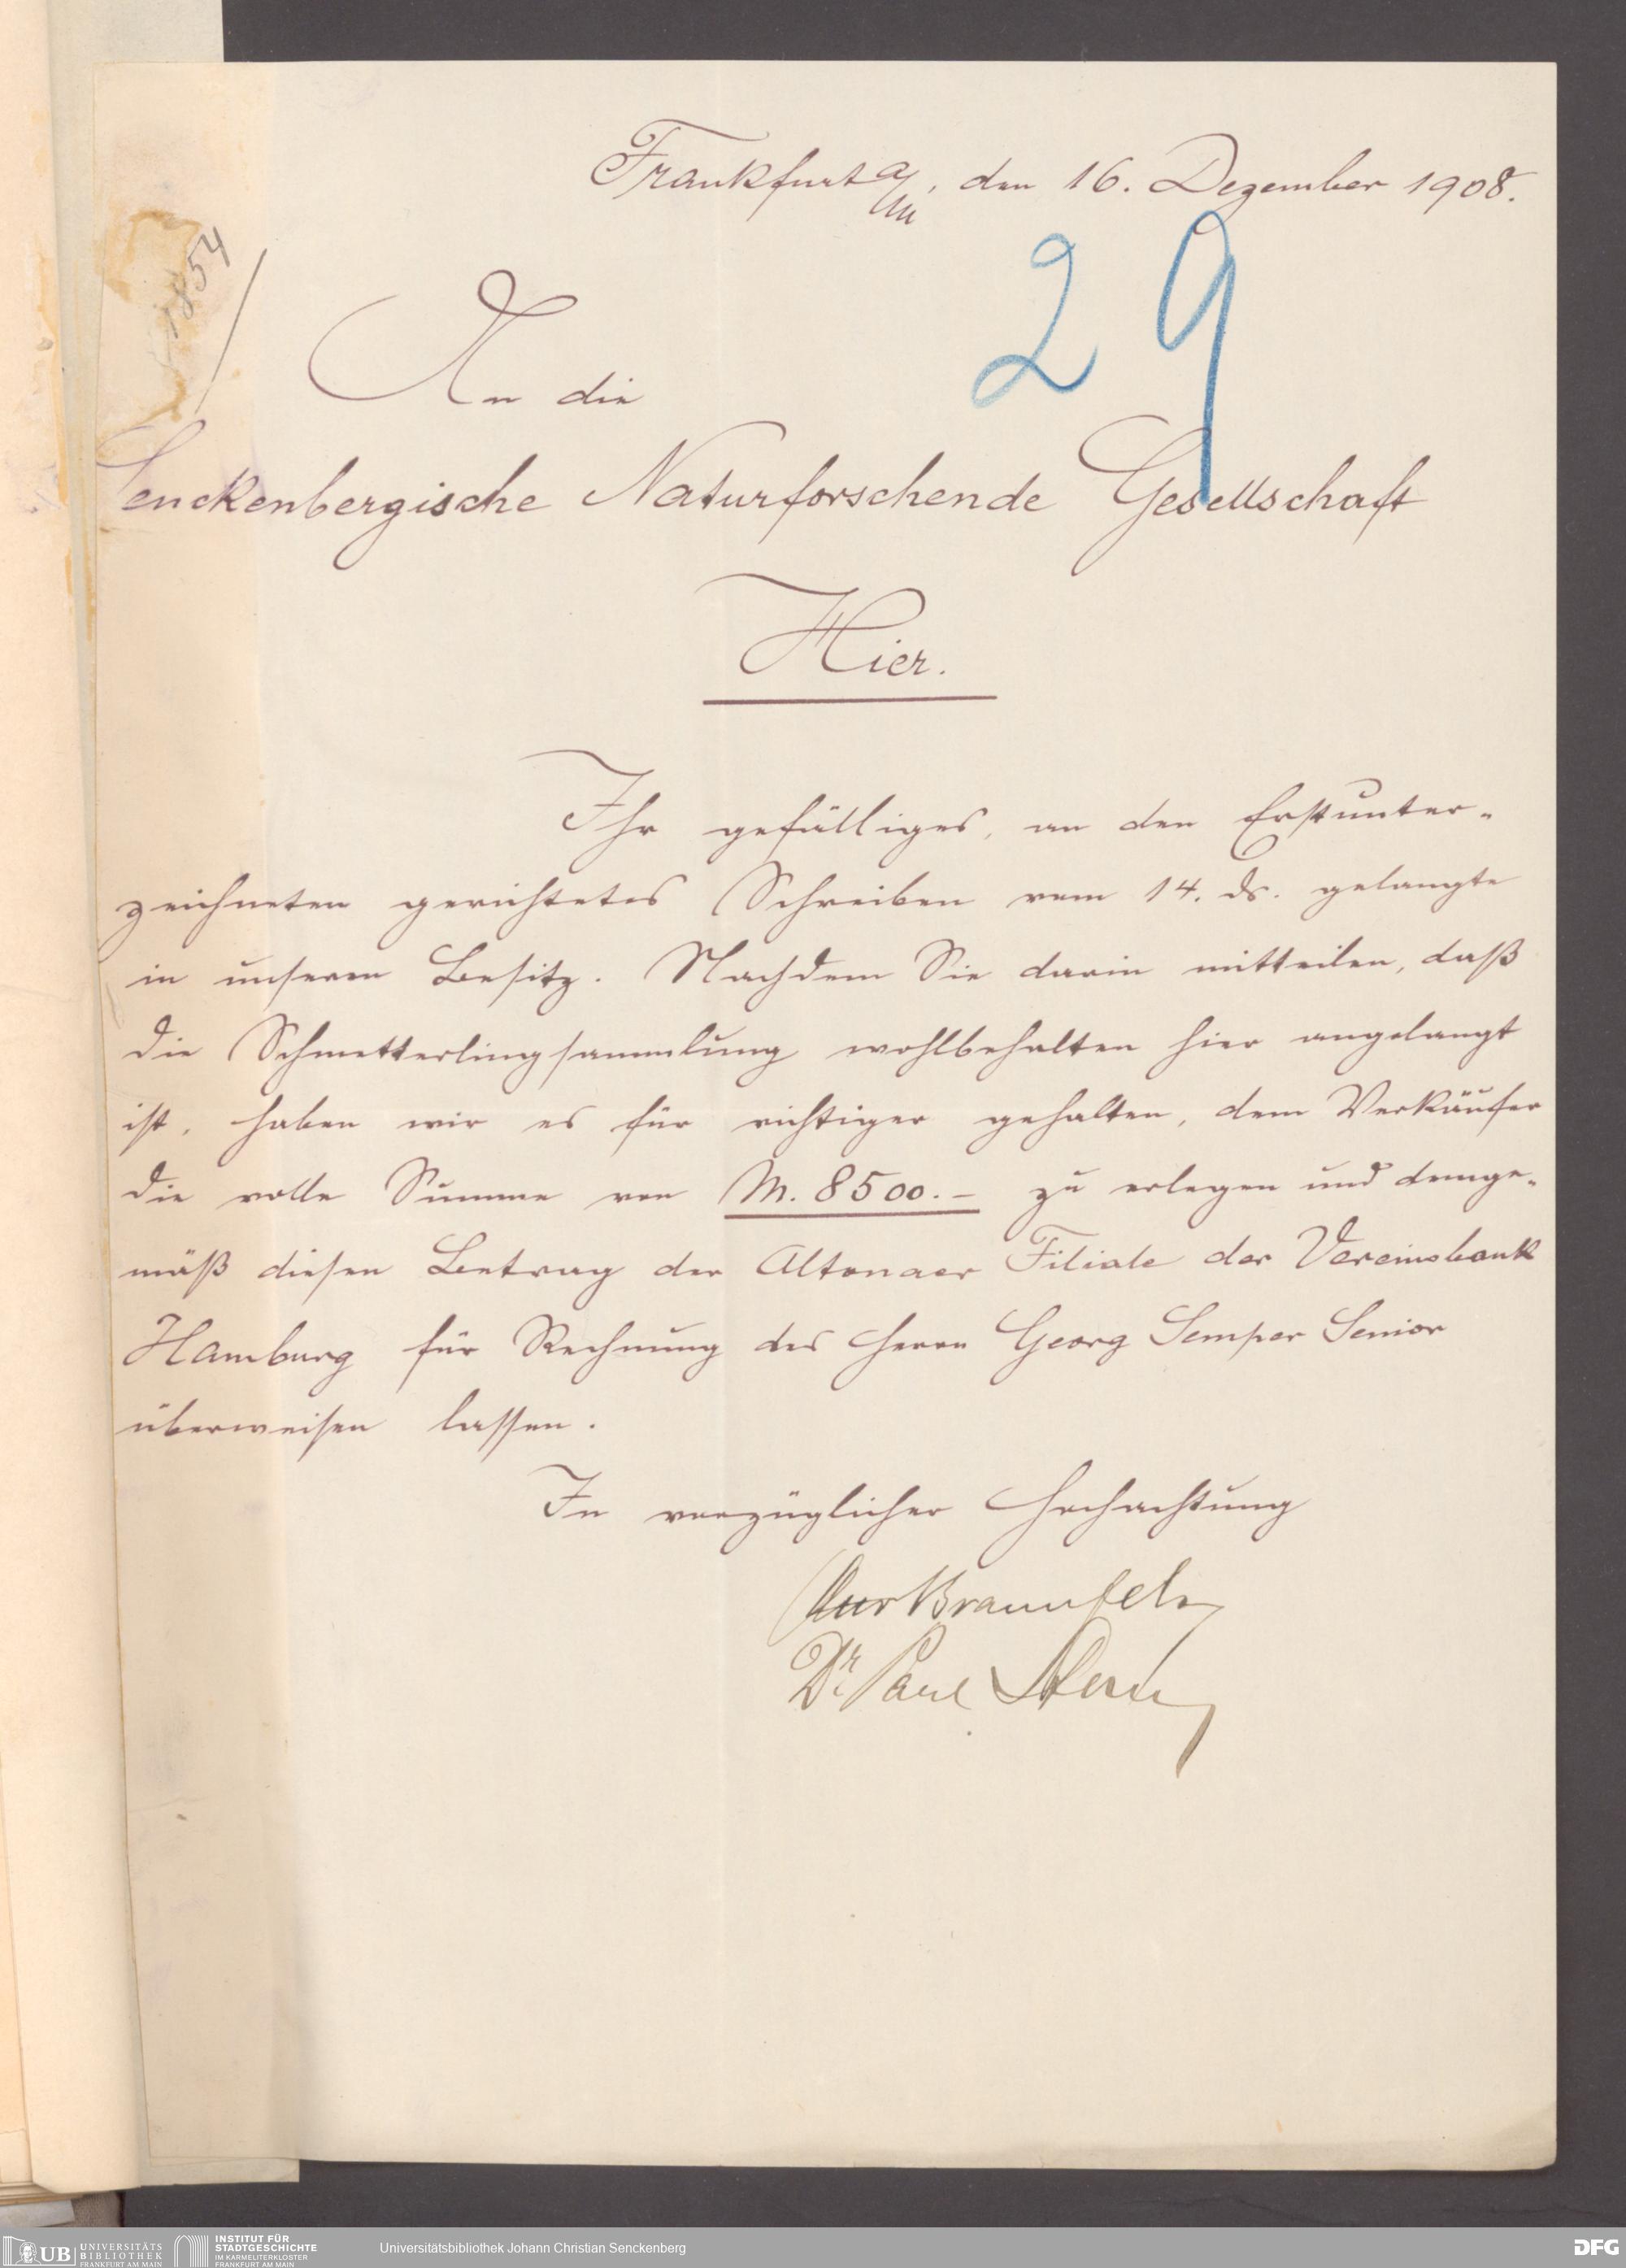 Frankfurt a/M, den 16. Dezember 1908.
29
1854
An die
Senckenbergische Naturforschende Gesellschaft
Hier.
Ihr gefälliges, an den Erstunter-
zeichneten gerichtetes Schreiben vom 14. ds. gelangte
in unseren Besitz. Nachdem Sie darin mitteilen, daß
die Schmetterlingsammlung wohlbehalten hier angelangt
ist, haben wir es für richtiger gehalten, dem Verkäufer
die volle Summe von M. 8500.— zu erlegen und demge-
mäß diesen Betrag der Altonaer Filiale der Vereinsbank
Hamburg für Rechnung des Herrn Georg Semper Senior
überweisen lassen.
In vorzüglicher Hochachtung
Braunfels
Dr. Paul Stern
UB UNIVERSITÄTS
BIBLIOTHEK
FRANKFURT AM MAIN
INSTITUT FÜR
STADTGESCHICHTE
IM KARMELITERKLOSTER
FRANKFURT AM MAIN
Universitätsbibliothek Johann Christian Senckenberg
DFG